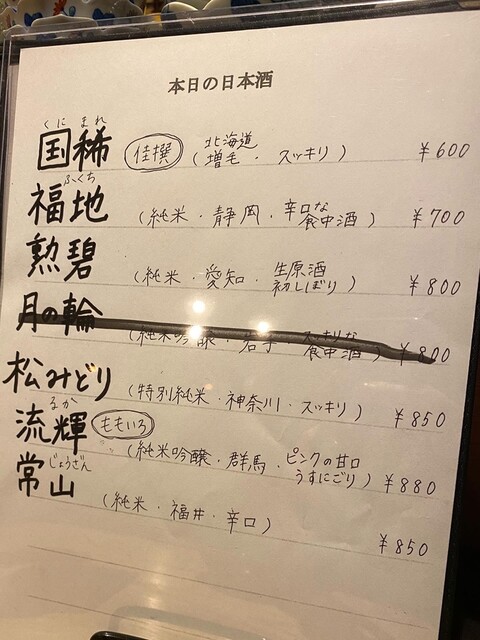 本日の日本酒
くにまれ
国稀 佳撰 (北海道 増毛・スッキリ) ¥600
ふくち
福地 (純米・静岡・辛口な食中酒) ¥700
勲碧 (純米・愛知・生原酒 初しぼり) ¥800
月の輪 (純米吟醸・岩手・スッキリな食中酒) ¥800
松みどり (特別純米・神奈川・スッキリ) ¥850
るか
流輝 ももいろ (純米吟醸・群馬・ピンクの甘口 うすにごり) ¥880
じょうざん
常山 (純米・福井・辛口) ¥850